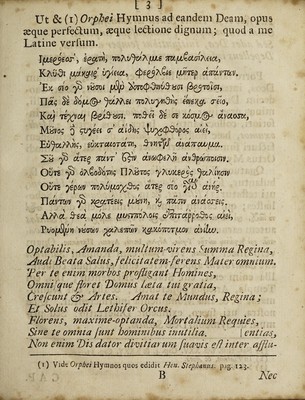 [ 3 ]
Ut & (1) Orphei Hymnus ad eandem Deam, opus
æque perfectum, æque lectione dignum; quod a me
Latine versum.
Ἱμερόεσς, ἐρατὴ, πολυθάλμιε παμβασίλεια,
Κλῦθι μάκαιρ ὑγίεια, φερόλβιε μῆτερ ἁπάντων.
Ἐκ σέο γὸ νοῦσοι μὲν ἀποφθινύθουσι βροτοῖσι,
Πᾶς δὲ δόμος θάλλει πολυγηθὴς εἵνεκα σεῖο,
Καὶ τέχναι βρίθουσι. ποθεῖ δέ σε κόσμος ἄνασσα,
Μοῦνος ἢ στυγέει σ' αἴδης ψυχοφθόρος αἰεὶ,
Εὐθαλλὴς, εὐκταιοτάτη, θνητῶν ἀνάπαυμα.
Σοῦ γὸ ἄτερ παντ' ἐστιν ἀνωφελῆ ἀνθρώποισιν.
Οὔτε γὸ ὀλβοδότης Πλοῦτος γλυκερὸς θαλίῃσιν
Οὔτε γέρων πολύμοχθος ἄτερ σέο γίνεται ἀνήρ.
Πάντων γὸ κρατέεις μούνη, κ πᾶσιν ἀνάσσεις.
Ἀλλὰ θεὰ μόλε μυστιπόλοις ἐπιτάρροθος αἰεὶ,
Ρυομένη νούσων χαλεπῶν κακόποτμον ἀνίην.
Optabilis, Amanda, multum-virens Summa Regina,
Audi Beata Salus, felicitatem-ferens Mater omnium.
Per te enim morbos profligant Homines,
Omnique floret Domus læta tui gratia,
Crescunt & Artes. Amat te Mundus, Regina;
Et Solus odit Lethifer Orcus.
Florens, maxime-optanda, Mortalium Requies,
Sine te omnia sunt hominibus inutilia. [entias,
Non enim Dis dator divitiarum suavis est inter afflu-
(1) Vide Orphei Hymnos quos edidit Hen. Stephanus. pag. 123.
B Nec